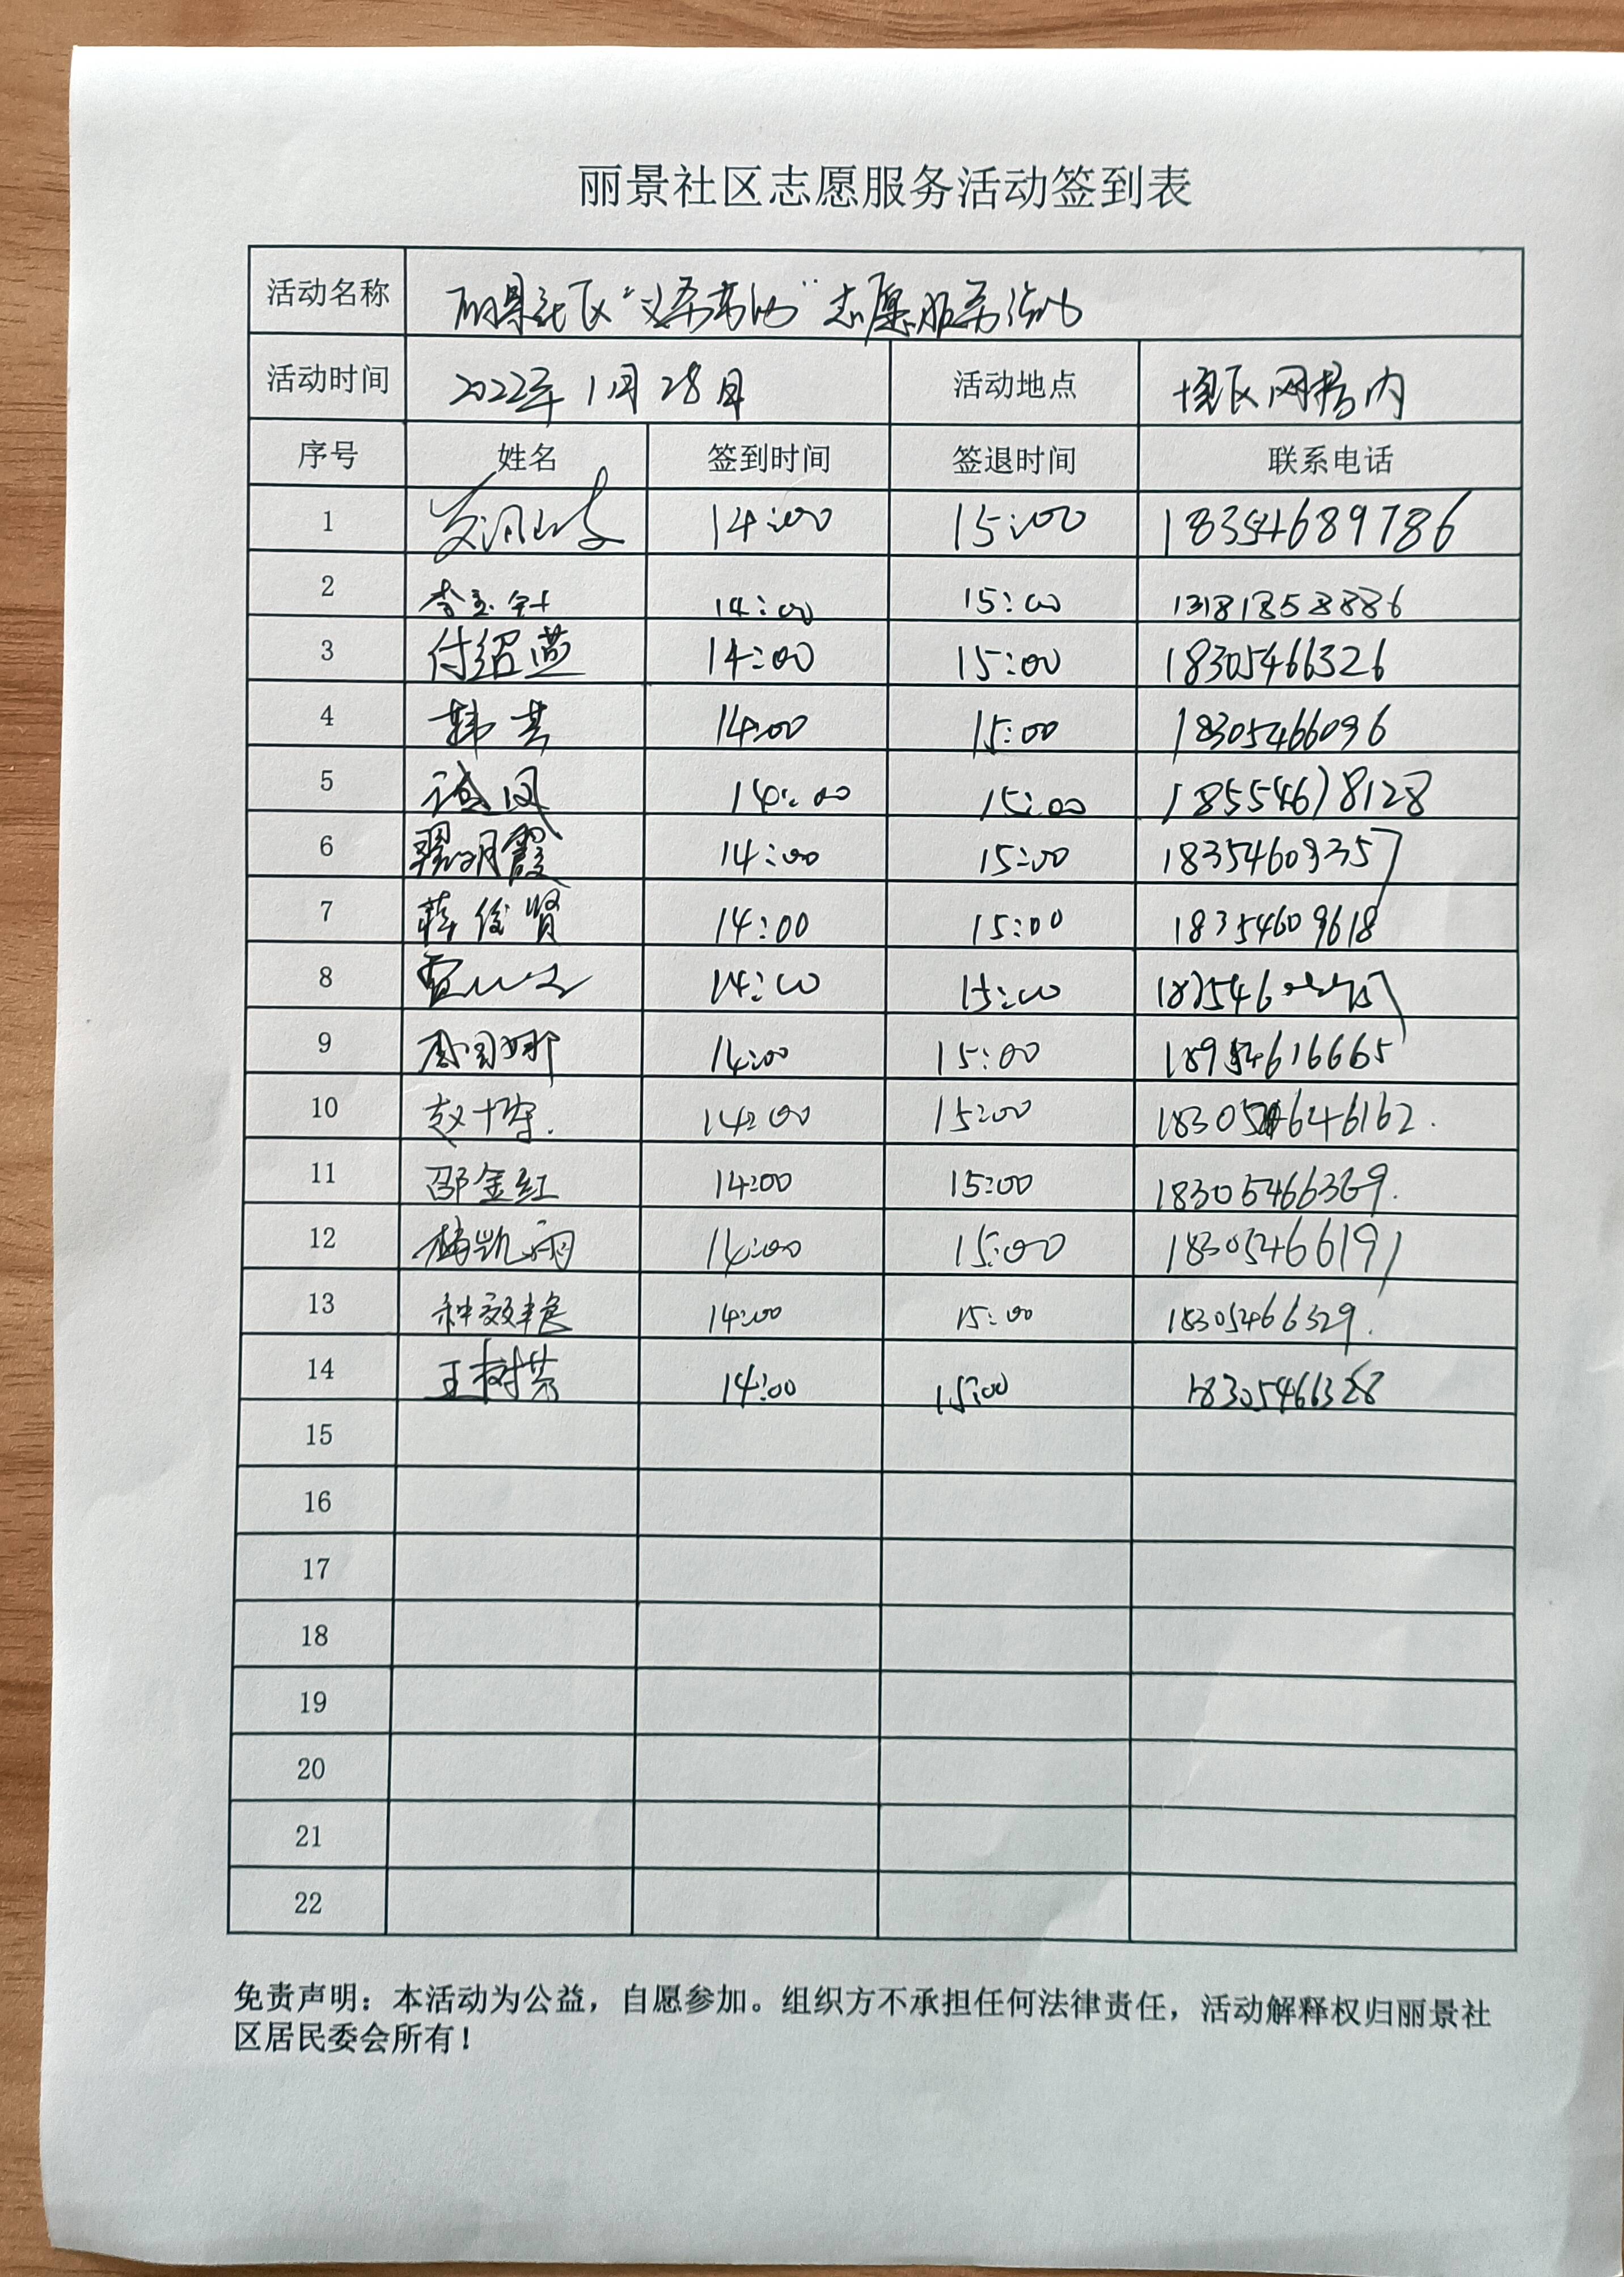 丽景社区志愿服务活动签到表
活动名称 丽景社区“义务劳动”志愿服务活动
活动时间 2022年1月28日 活动地点 辖区网格内
序号 姓名 签到时间 签退时间 联系电话
1 14:00 15:00 18354689786
2 14:00 15:00 13181858886
3 付绍燕 14:00 15:00 18305466326
4 韩芸 14:00 15:00 18305466096
5 14:00 15:00 18554678128
6 翟明霞 14:00 15:00 18354609357
7 薛俊贤 14:00 15:00 18354609618
8 14:00 15:00
9 14:00 15:00 18954616665
10 14:00 15:00 18305646162.
11 邵金红 14:00 15:00 18305466369.
12 14:00 15:00 18305466191
13 种效艳 14:00 15:00 18305466329.
14 王树芳 14:00 15:00 18305466328
15
16
17
18
19
20
21
22
免责声明：本活动为公益，自愿参加。组织方不承担任何法律责任，活动解释权归丽景社
区居民委会所有！